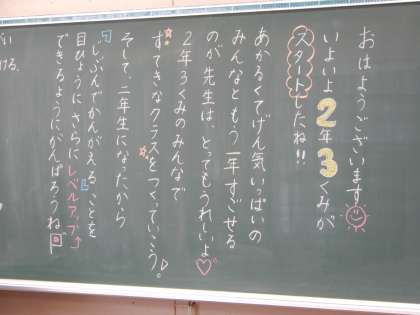 おはようございます
いよいよ２年３くみが
スタートしたね!!
あかるくてげん気いっぱいの
みんなともう一年すごせる
のが先生は、とってもうれしいよ♡
２年３くみのみんなで
すてきなクラスをつくっていこう。
そして、二年生になったから
「じぶんでかんがえる」ことを
目ひょうにさらにレベルアップ
できるようにがんばろうね
ける。